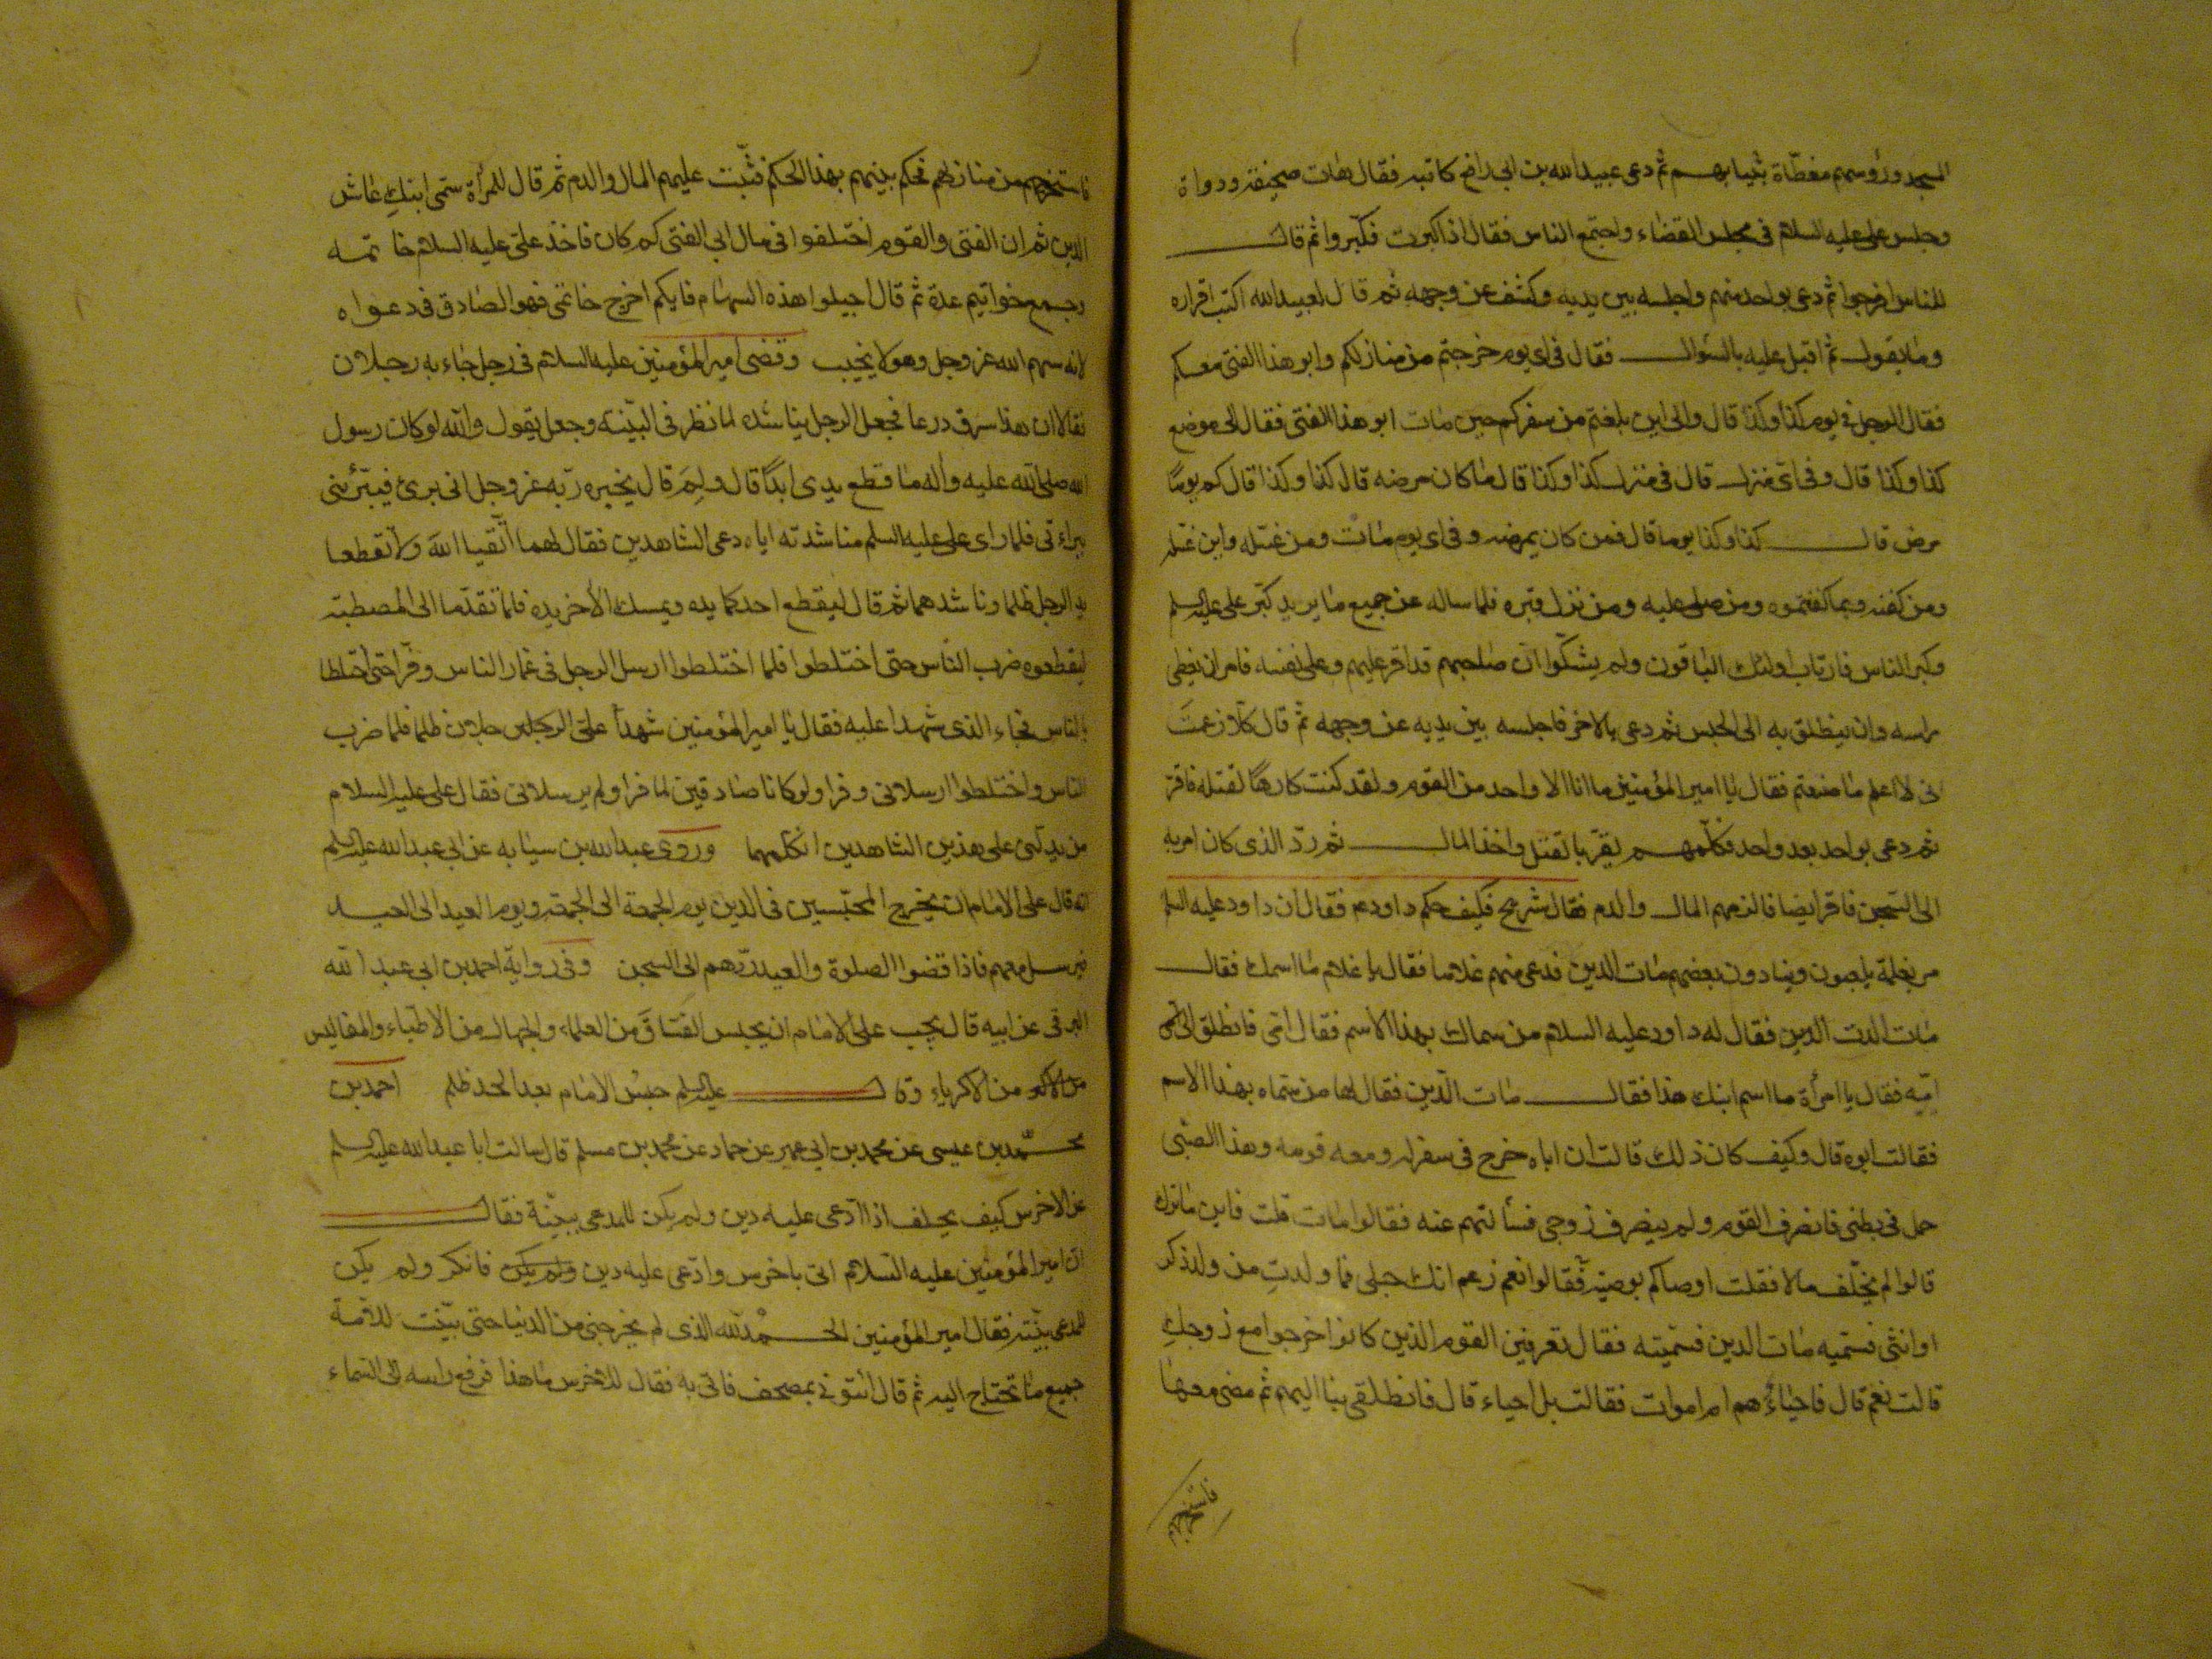 المسجد ورؤسهم مغطاة بثيابهم ثم دعى عبيد الله بن ابى رافع كاتبه فقال هات صحيفة ودواة
وجلس على عليه السلام فى مجلس القضاء واجتمع الناس فقال اذا كبرت فكبروا ثم قال
للناس افرجوا ثم دعى بواحد منهم واجلسه بين يديه وكشف عن وجهه ثم قال لعبيد الله اكتب اقراره
وما يقول ثم اقبل عليه بالسؤال فقال فى اى يوم خرجتم من منازلكم وابو هذا الفتى معكم
فقال الرجل فى يوم كذا وكذا قال والى اين بلغتم من سفركم حين مات ابو هذا الفتى فقال الى موضع
كذا وكذا قال وفى اى منزل قال فى منزل كذا وكذا قال ما كان مرضه قال كذا وكذا قال كم يوما
مرض قال كذا وكذا يوما قال فمن كان يمرضه وفى اى يوم مات ومن غسله واين غسله
ومن كفنه وبما كفنتموه ومن صلى عليه ومن نزل قبره فلما ساله عن جميع ما يريد كبر على عليه السلم
وكبر الناس فارتاب اولئك الباقون ولم يشكوا ان صاحبهم قد اقر عليهم وعلى نفسه فامر ان يغطى
راسه وان ينطلق به الى الحبس ثم دعى بالاخر فاجلسه بين يديه عن وجهه ثم قال كلا زعمت
انى لا اعلم ما صنعتم فقال يا امير المؤمنين ما انا الا واحد من القوم ولقد كنت كارها لقتله فاقر
ثم دعى بواحد بعد واحد فكلهم يقر بالقتل واخذ المال ثم رد الذى كان امر به
الى السجن فاقر ايضا فالزمهم المال والدم فقال شريح فكيف حكم داود عم فقال ان داود عليه السلم
مر بغلمة يلعبون وينادون بعضهم مات الدين فدعى منهم غلاما فقال يا غلام ما اسمك فقال
مات الدين فقال له داود عليه السلام من سماك بهذا الاسم فقال امى فانطلق الى
امه فقال يا امرأة ما اسم ابنك هذا فقالت مات الدين فقال لها من سماه بهذا الاسم
فقالت ابوه قال وكيف كان ذلك قالت ان اباه خرج فى سفر له ومعه قوم وهذا الصبى
حمل فى بطنى فانصرف القوم ولم ينصرف زوجى فسألتهم عنه فقالوا مات قلت فاين ما ترك
قالوا لم يخلف مالا فقلت اوصاكم بوصية فقالوا نعم زعم انك حبلى فما ولدت من ولد ذكر
او انثى فسميه مات الدين فسميته فقال تعرفين القوم الذين كانوا خرجوا مع زوجك
قالت نعم قال فاحياء هم ام اموات فقالت بل احياء قال فانطلقى بنا اليهم ثم مضى معها
فاستخرجهم
فاستخرجهم من منازلهم فحكم بينهم بهذا الحكم فثبت عليهم المال والدم ثم قال للمرأة سمى ابنك عاش
الدين ثم ان الفتى والقوم اختلفوا فى مال ابى الفتى كم كان فاخذ على عليه السلام خاتمه
وجمع خواتيم عدة ثم قال اجيلوا هذه السهام فايكم اخرج خاتمى فهو الصادق فى دعواه
لانه سهم الله عز وجل وهو لا يخيب وقضى امير المؤمنين عليه السلام فى رجل جاء به رجلان
فقالا ان هذا سرق درعا فجعل الرجل يناشده لما نظر فى البينة وجعل يقول والله لو كان رسول
الله صلى الله عليه واله ما قطع يدى ابدا قال ولم قال يخبره ربه عز وجل انى برئ فيبرئنى
ببراءتى فلما راى على عليه السلم مناشدته اياه دعى الشاهدين فقال لهما اتقيا الله ولا تقطعا
يد الرجل ظلما وناشدهما ثم قال ليقطع احدكما يده ويمسك الاخر يده فلما تقدما الى المصطبة
ليقطعوه ضرب الناس حتى اختلطوا فلما اختلطوا ارسلا الرجل فى غمار الناس وفرا حتى اختلطا
بالناس فجاء الذى شهدا عليه فقال يا امير المؤمنين شهدا على الرجلان ظلما فلما ضرب
الناس واختلطوا ارسلانى وفرا ولو كانا صادقين لما فرا ولم يرسلانى فقال على عليه السلام
من يدلنى على هذين الشاهدين انكلهما وروى عبد الله بن سيابه عن ابى عبد الله عليه السلم
انه قال على الامام ان يخرج المحبسين فى الدين يوم الجمعة الى الجمعة ويوم العيد الى العيد
فيرسل معهم فاذا قضوا الصلوة والعيد ردهم الى السجن وفى رواية احمد بن ابى عبد الله
البرقى عن ابيه قال يجب على الامام ان يحبس الفساق من العلماء والجهال من الاطباء والمفاليس
من الاكرياء وقال عليه السلم حبس الامام بعد الحد ظلم احمد بن
محمد بن عيسى عن محمد بن ابى عمير عن حماد عن محمد بن مسلم قال سالت ابا عبد الله عليه السلم
عن الاخرس كيف يحلف اذا ادعى عليه دين ولم يكن للمدعى بينة فقال
ان امير المؤمنين عليه السلام اتى باخرس وادعى عليه دين ولم يكن فانكر ولم يكن
للمدعى بينة فقال امير المؤمنين الحمد لله الذى لم يخرجنى من الدنيا حتى بينت للامة
جميع ما تحتاج اليه ثم قال ائتونى بمصحف فاتى به فقال للاخرس ما هذا فرفع راسه الى السماء